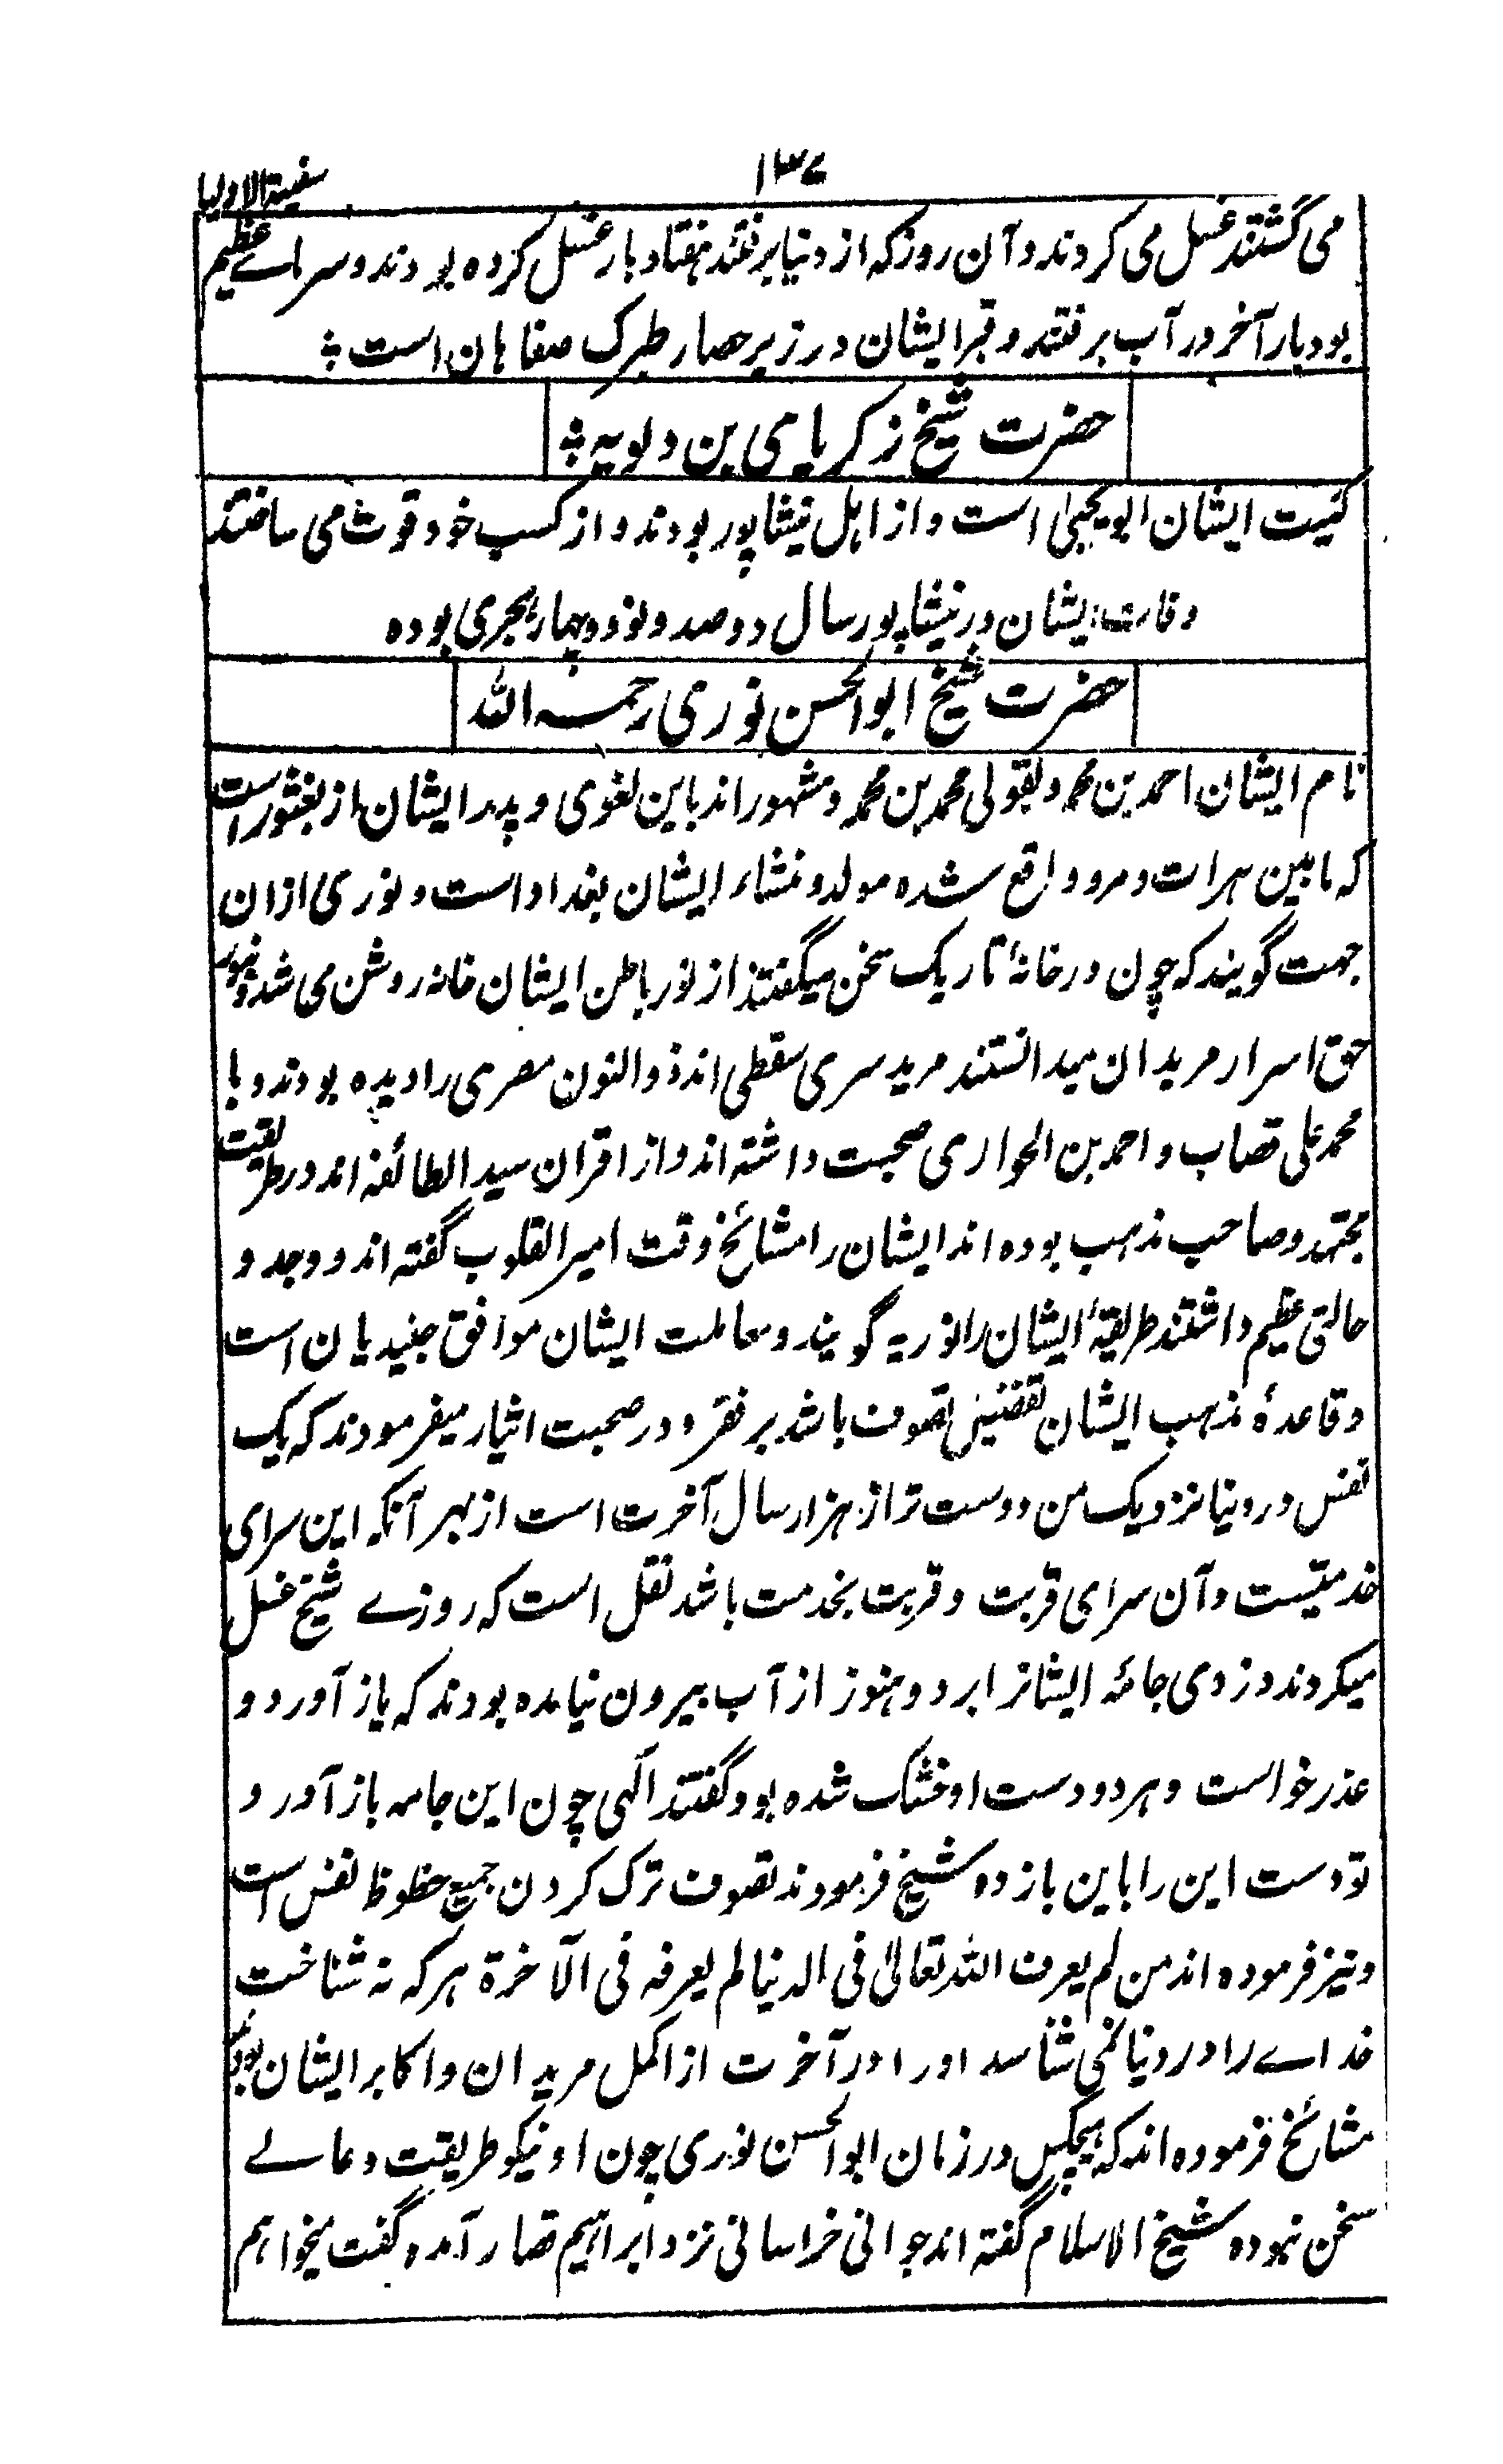 ۱۳۷
سفینۃ الاولیا
می گشتند غسل می کردند و آن روز که از دنیا برفتند هفتاد بار غسل کرده بودند و سرماے عظیم
بود بار آخر در آب برفتند و قبر ایشان در زیر حصار طبرک صفاهان است ؞
حضرت شیخ زکریا می بن دلویہ ؞
کنیت ایشان ابو یحییٰ است و از اهل نیشاپور بودند و از کسب خود قوت می ساختند
وفات ایشان در نیشاپور سال دو صد و نود و چهار هجری بوده
حضرت شیخ ابو الحسن نوری رحمہ اللہ
نام ایشان احمد بن محمد و بقولی محمد بن محمد و مشهور اند باین لغوی و پدر ایشان از بغشور است
که مابین هرات و مرو واقع شده مولد و منشاء ایشان بغداد است و نوری ازان
جهت گویند که چون در خانۂ تاریک سخن میگفتند از نور باطن ایشان خانه روشن می شد و بنور
حق اسرار مریدان میدانستند مرید سری سقطی اند ذوالنون مصری را دیده بودند و با
محمد علی قصاب و احمد بن الحواری صحبت داشته اند و از اقران سید الطائفه اند در طریقت
مجتهد و صاحب مذهب بوده اند ایشان را مشائخ وقت امیر القلوب گفته اند و وجد و
حالتی عظیم داشتند طریقۂ ایشان را نوریه گویند و معاملت ایشان موافق جنیدیان است
و قاعدۂ مذهب ایشان تفضیل تصوف باشد بر فقر و در صحبت ایثار میفرمودند که یک
نفس در دنیا نزدیک من دوست تر از هزار سال آخرت است از بهر آنکه این سرای
خدمتیست و آن سرای قربت و قربت بخدمت باشد نقل است که روزے شیخ غسل
میکردند دزدی جامۂ ایشانرا برد و هنوز از آب بیرون نیامده بودند که باز آورد و
عذر خواست و هر دو دست او خشک شده بود گفتند الٰهی چون این جامه باز آورد و
تو دست این را باین باز ده شیخ فرمودند تصوف ترک کردن جمیع حظوظ نفس است
و نیز فرموده اند من لم یعرف اللہ تعالیٰ فی الدنیا لم یعرفه فی الآخرة هر که نه شناخت
خداے را در دنیا نمی شناسد او را در آخرت از اکمل مریدان و اکابر ایشان بودند
مشائخ فرموده اند که هیچکس در زمان ابو الحسن نوری چون او نیکو طریقت و عالے
سخن نبوده شیخ الاسلام گفته اند جوانی خراسانی نزد ابراهیم قصار آمده گفت میخواهم